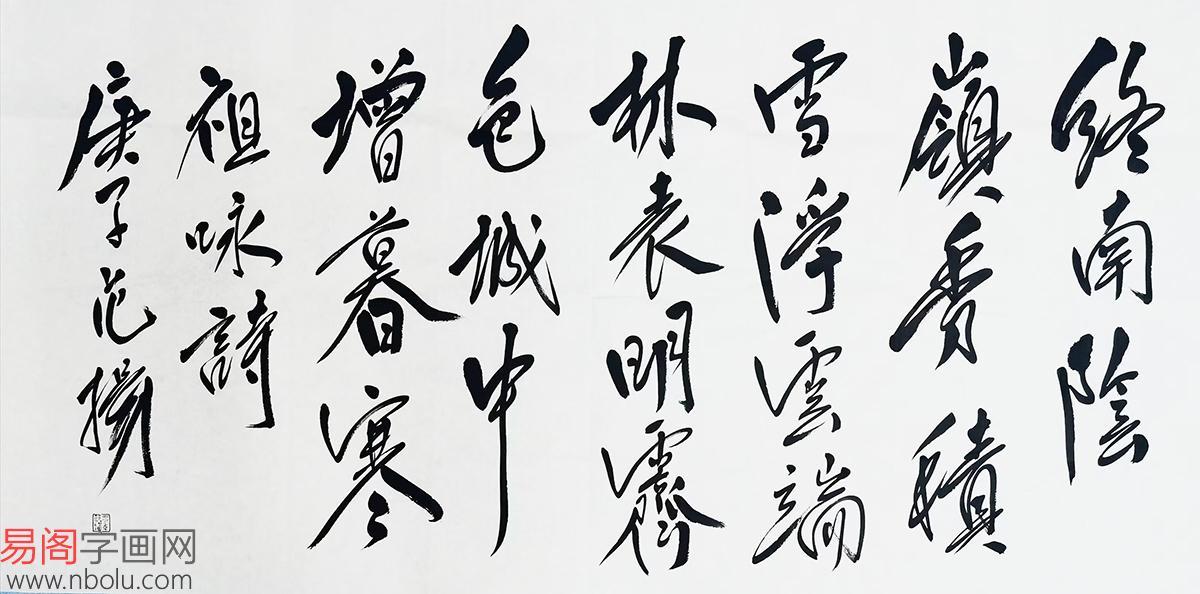 終南陰
嶺秀積
雪浮雲端
林表明霽
色城中
增暮寒
祖咏詩
庚子范揚
易阁字画网
www.nbolu.com